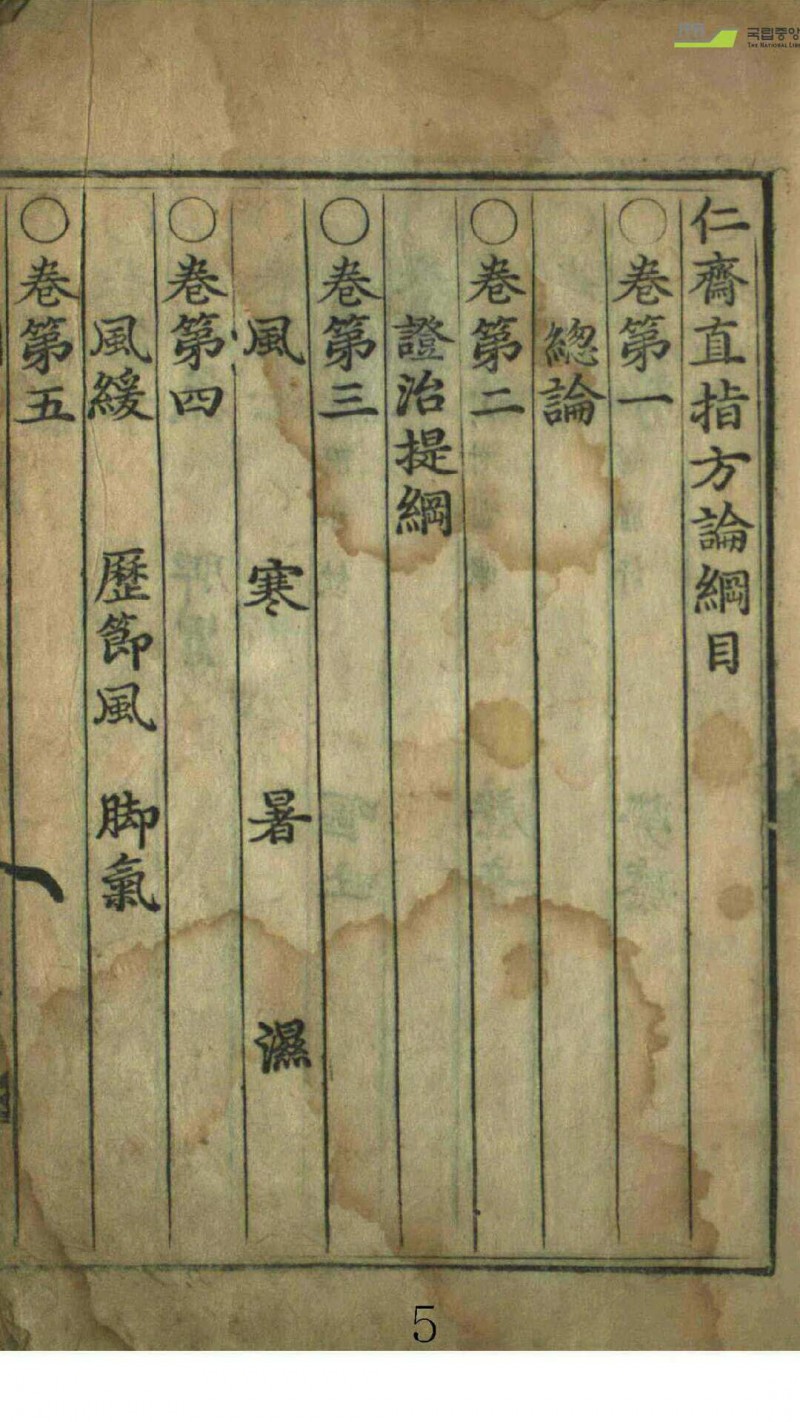 국립중앙
THE NATIONAL LIB
仁齋直指方論綱目
〇卷第一
總論
〇卷第二
證治提綱
〇卷第三
風 寒 暑 濕
〇卷第四
風緩 歷節風 脚氣
〇卷第五
5